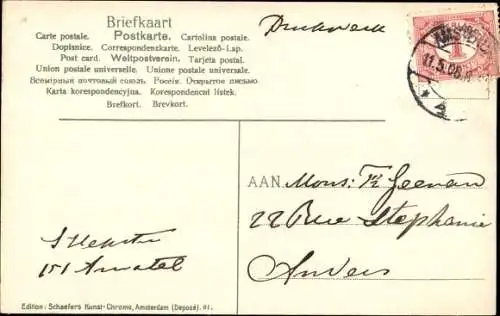 Briefkaart
Carte postale. Postkarte. Cartolina postale.
Dopisnice. Correspondenzkarte. Levelező-Lap.
Post card. Weltpostverein. Tarjeta postal.
Union postale universelle. Unione postale universale.
Всемірный почтовый союзъ. Россія. Открытое письмо.
Karta korespondencyjna. Korespondencní lístek.
Brefkort. Brevkort.
Drukwerk
1
11.5.06.
4
AAN Mons:
22 Rue Stephanie
Anvers
151 Amstel
Edition: Schaefers Kunst-Chromo, Amsterdam (Deposé). 91.